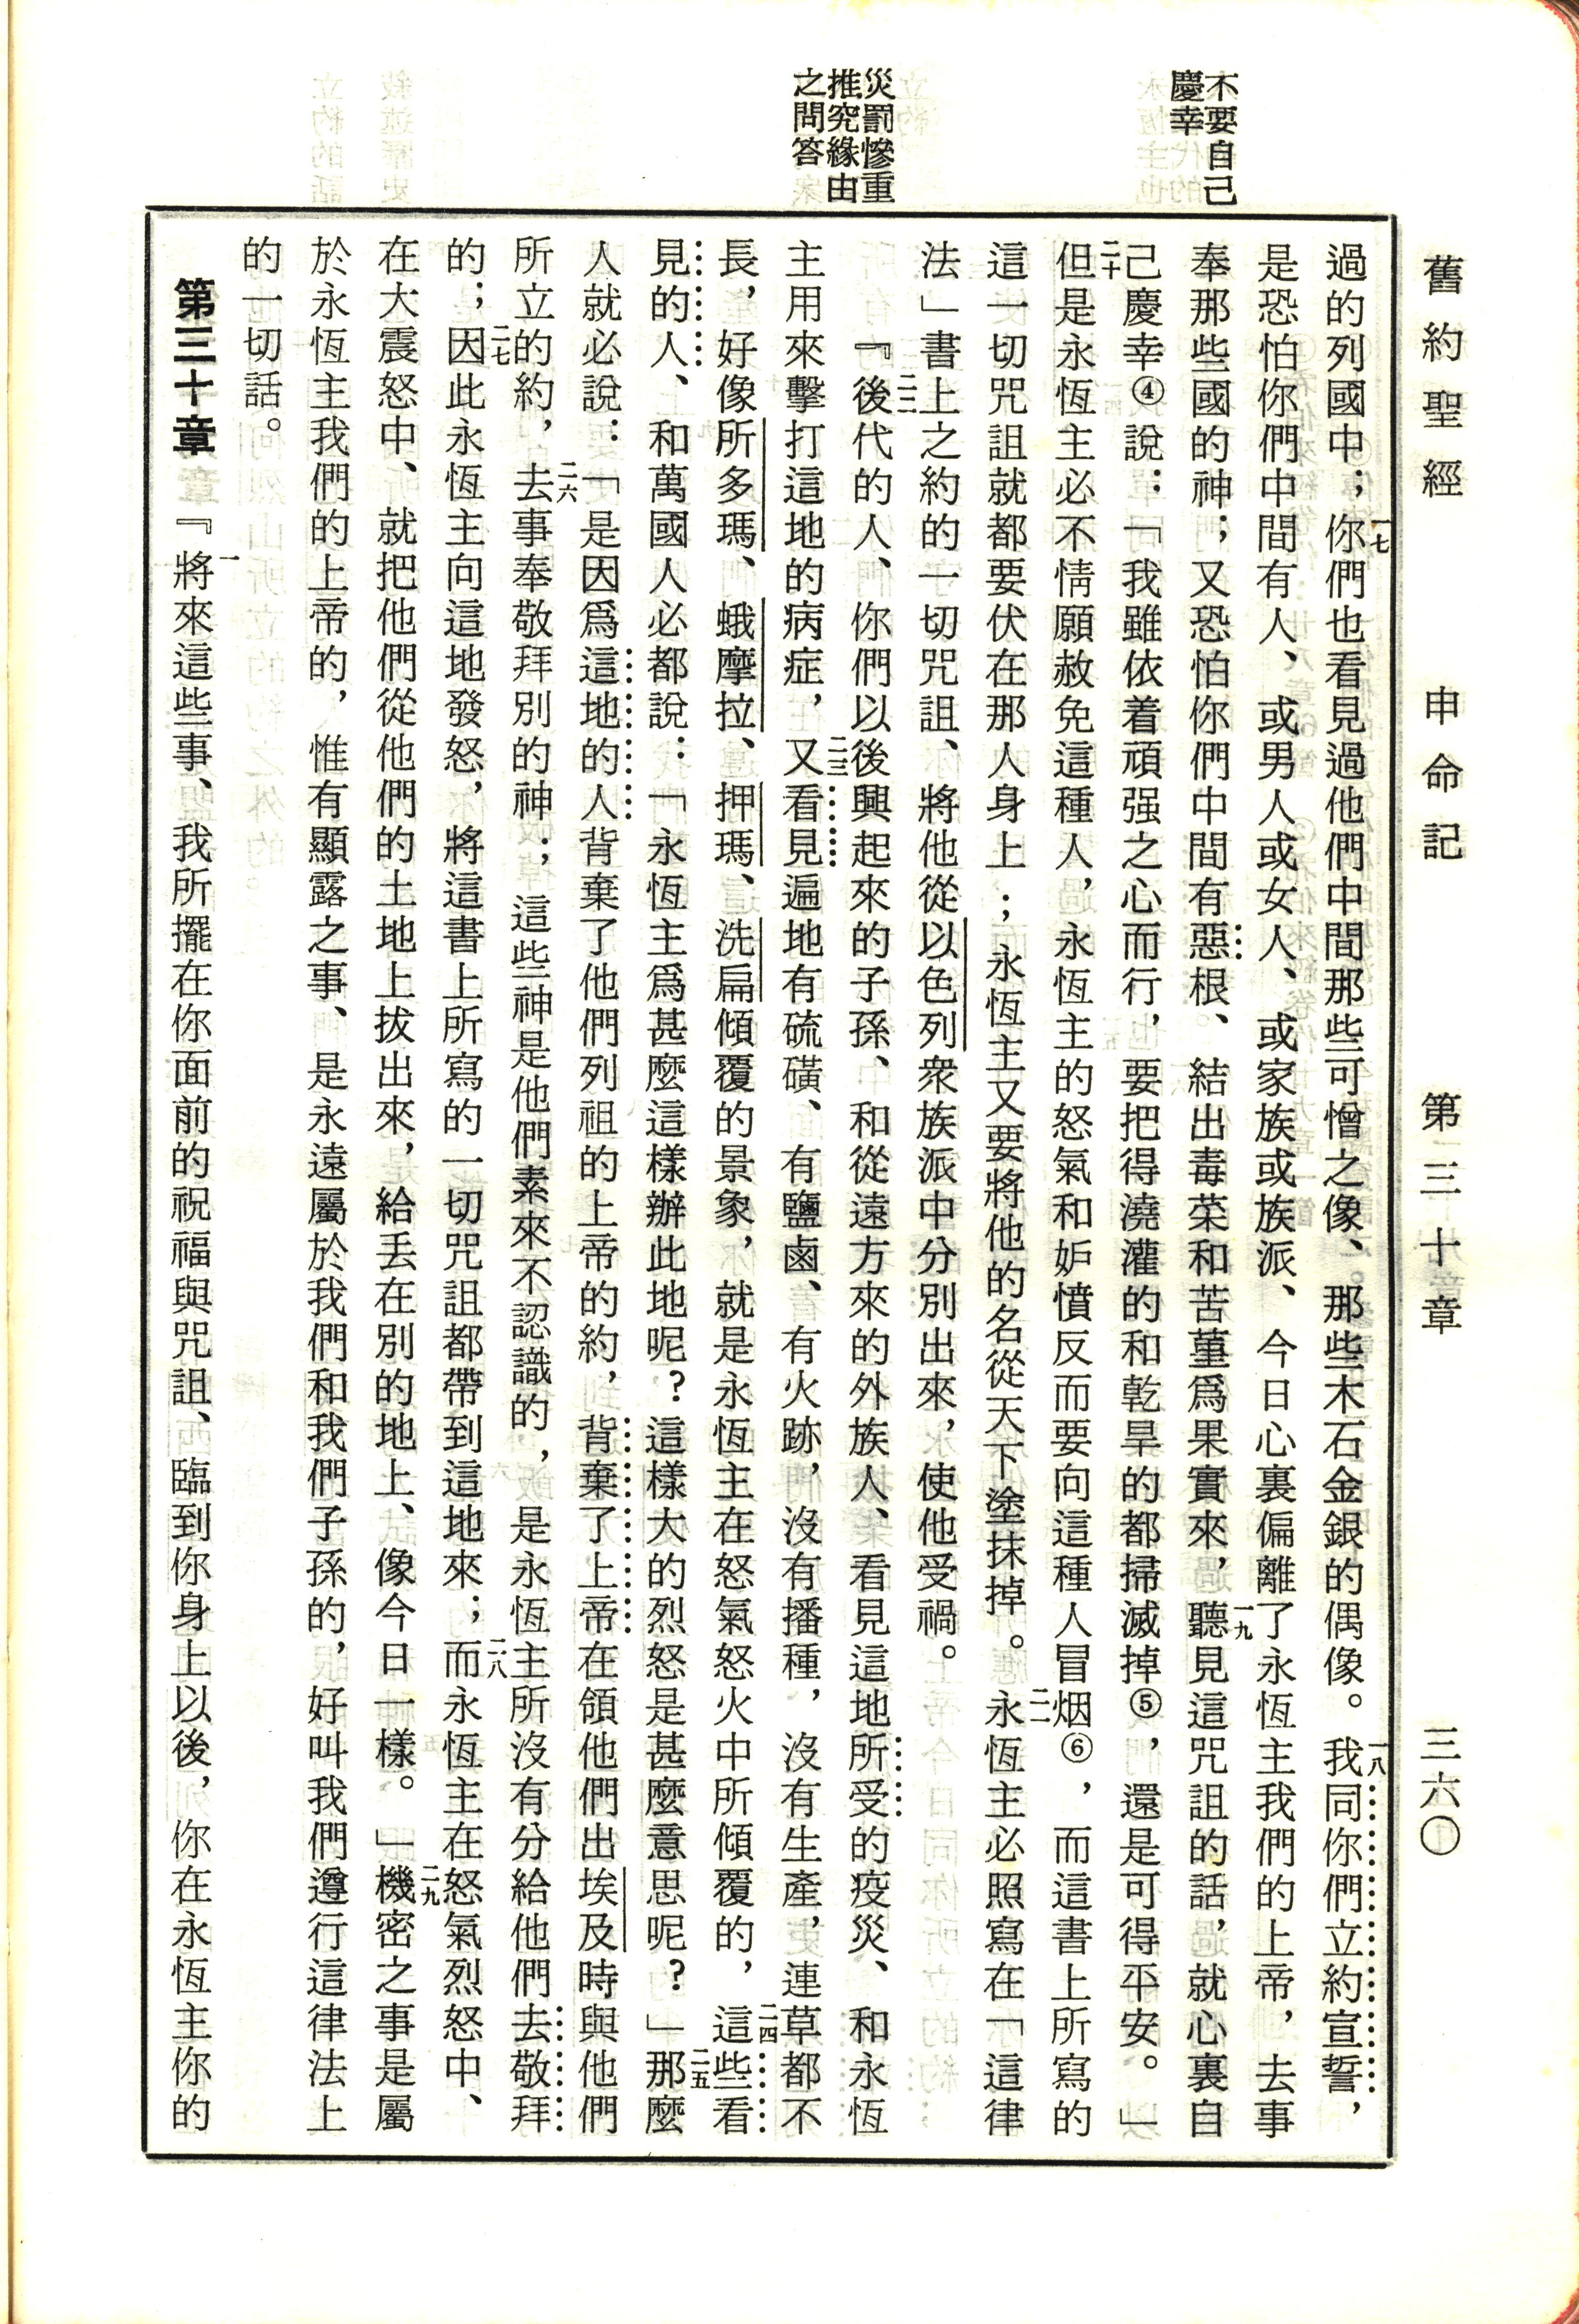 舊約聖經 申命記 第三十章 三六〇
不要自己
慶幸
災罰慘重
推究緣由
之問答
過的列國中；一七你們也看見過他們中間那些可憎之像、那些木石金銀的偶像。一八我同你們立約宣誓，
是恐怕你們中間有人、或男人或女人、或家族或族派、今日心裏偏離了永恆主我們的上帝，去事
奉那些國的神；又恐怕你們中間有惡根、結出毒菜和苦菫爲果實來，一九聽見這咒詛的話，就心裏自
己慶幸④說：「我雖依着頑强之心而行，要把得澆灌的和乾旱的都掃滅掉⑤，還是可得平安。」
二十但是永恆主必不情願赦免這種人，永恆主的怒氣和妒憤反而要向這種人冒烟⑥，而這書上所寫的
這一切咒詛就都要伏在那人身上；永恆主又要將他的名從天下塗抹掉。二一永恆主必照寫在「這律
法」書上之約的一切咒詛、將他從以色列衆族派中分別出來，使他受禍。
『二二後代的人、你們以後興起來的子孫、和從遠方來的外族人、看見這地所受的疫災、和永恆
主用來擊打這地的病症，二三又看見遍地有硫磺、有鹽鹵、有火跡，沒有播種，沒有生產，連草都不
長，好像所多瑪、蛾摩拉、押瑪、洗扁傾覆的景象，就是永恆主在怒氣怒火中所傾覆的，二四這些看
見的人、和萬國人必都說：「永恆主爲甚麼這樣辦此地呢？這樣大的烈怒是甚麼意思呢？」二五那麼
人就必說：「是因爲這地的人背棄了他們列祖的上帝的約，背棄了上帝在領他們出埃及時與他們
所立的約，二六去事奉敬拜別的神；這些神是他們素來不認識的，是永恆主所沒有分給他們去敬拜
的；二七因此永恆主向這地發怒，將這書上所寫的一切咒詛都帶到這地來；二八而永恆主在怒氣烈怒中、
在大震怒中、就把他們從他們的土地上拔出來，給丢在別的地上、像今日一樣。」二九機密之事是屬
於永恆主我們的上帝的，惟有顯露之事、是永遠屬於我們和我們子孫的，好叫我們遵行這律法上
的一切話。
第三十章 『一將來這些事、我所擺在你面前的祝福與咒詛、臨到你身上以後，你在永恆主你的